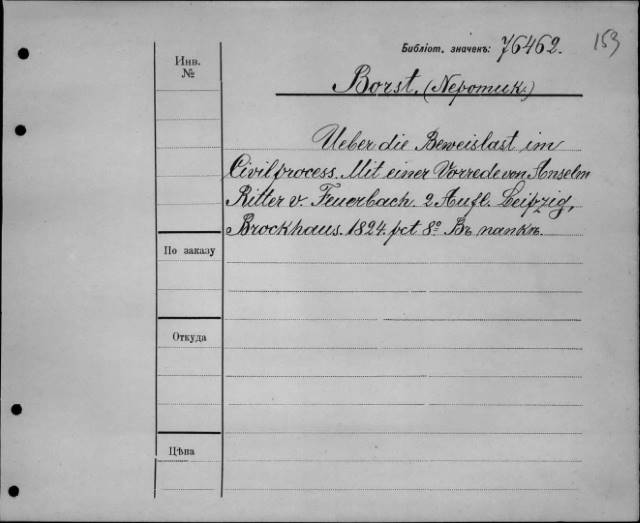 Библіот. значекъ: 76462. 153
Инв. №
Borst. (Nepomuk.)
Ueber die Beweislast im
Civilprocess. Mit einer Vorrede von Anselm
Ritter v. Feuerbach. 2 Aufl. Leipzig,
Brockhaus. 1824. pct 8º Въ папкѣ.
По заказу
Откуда
Цѣна